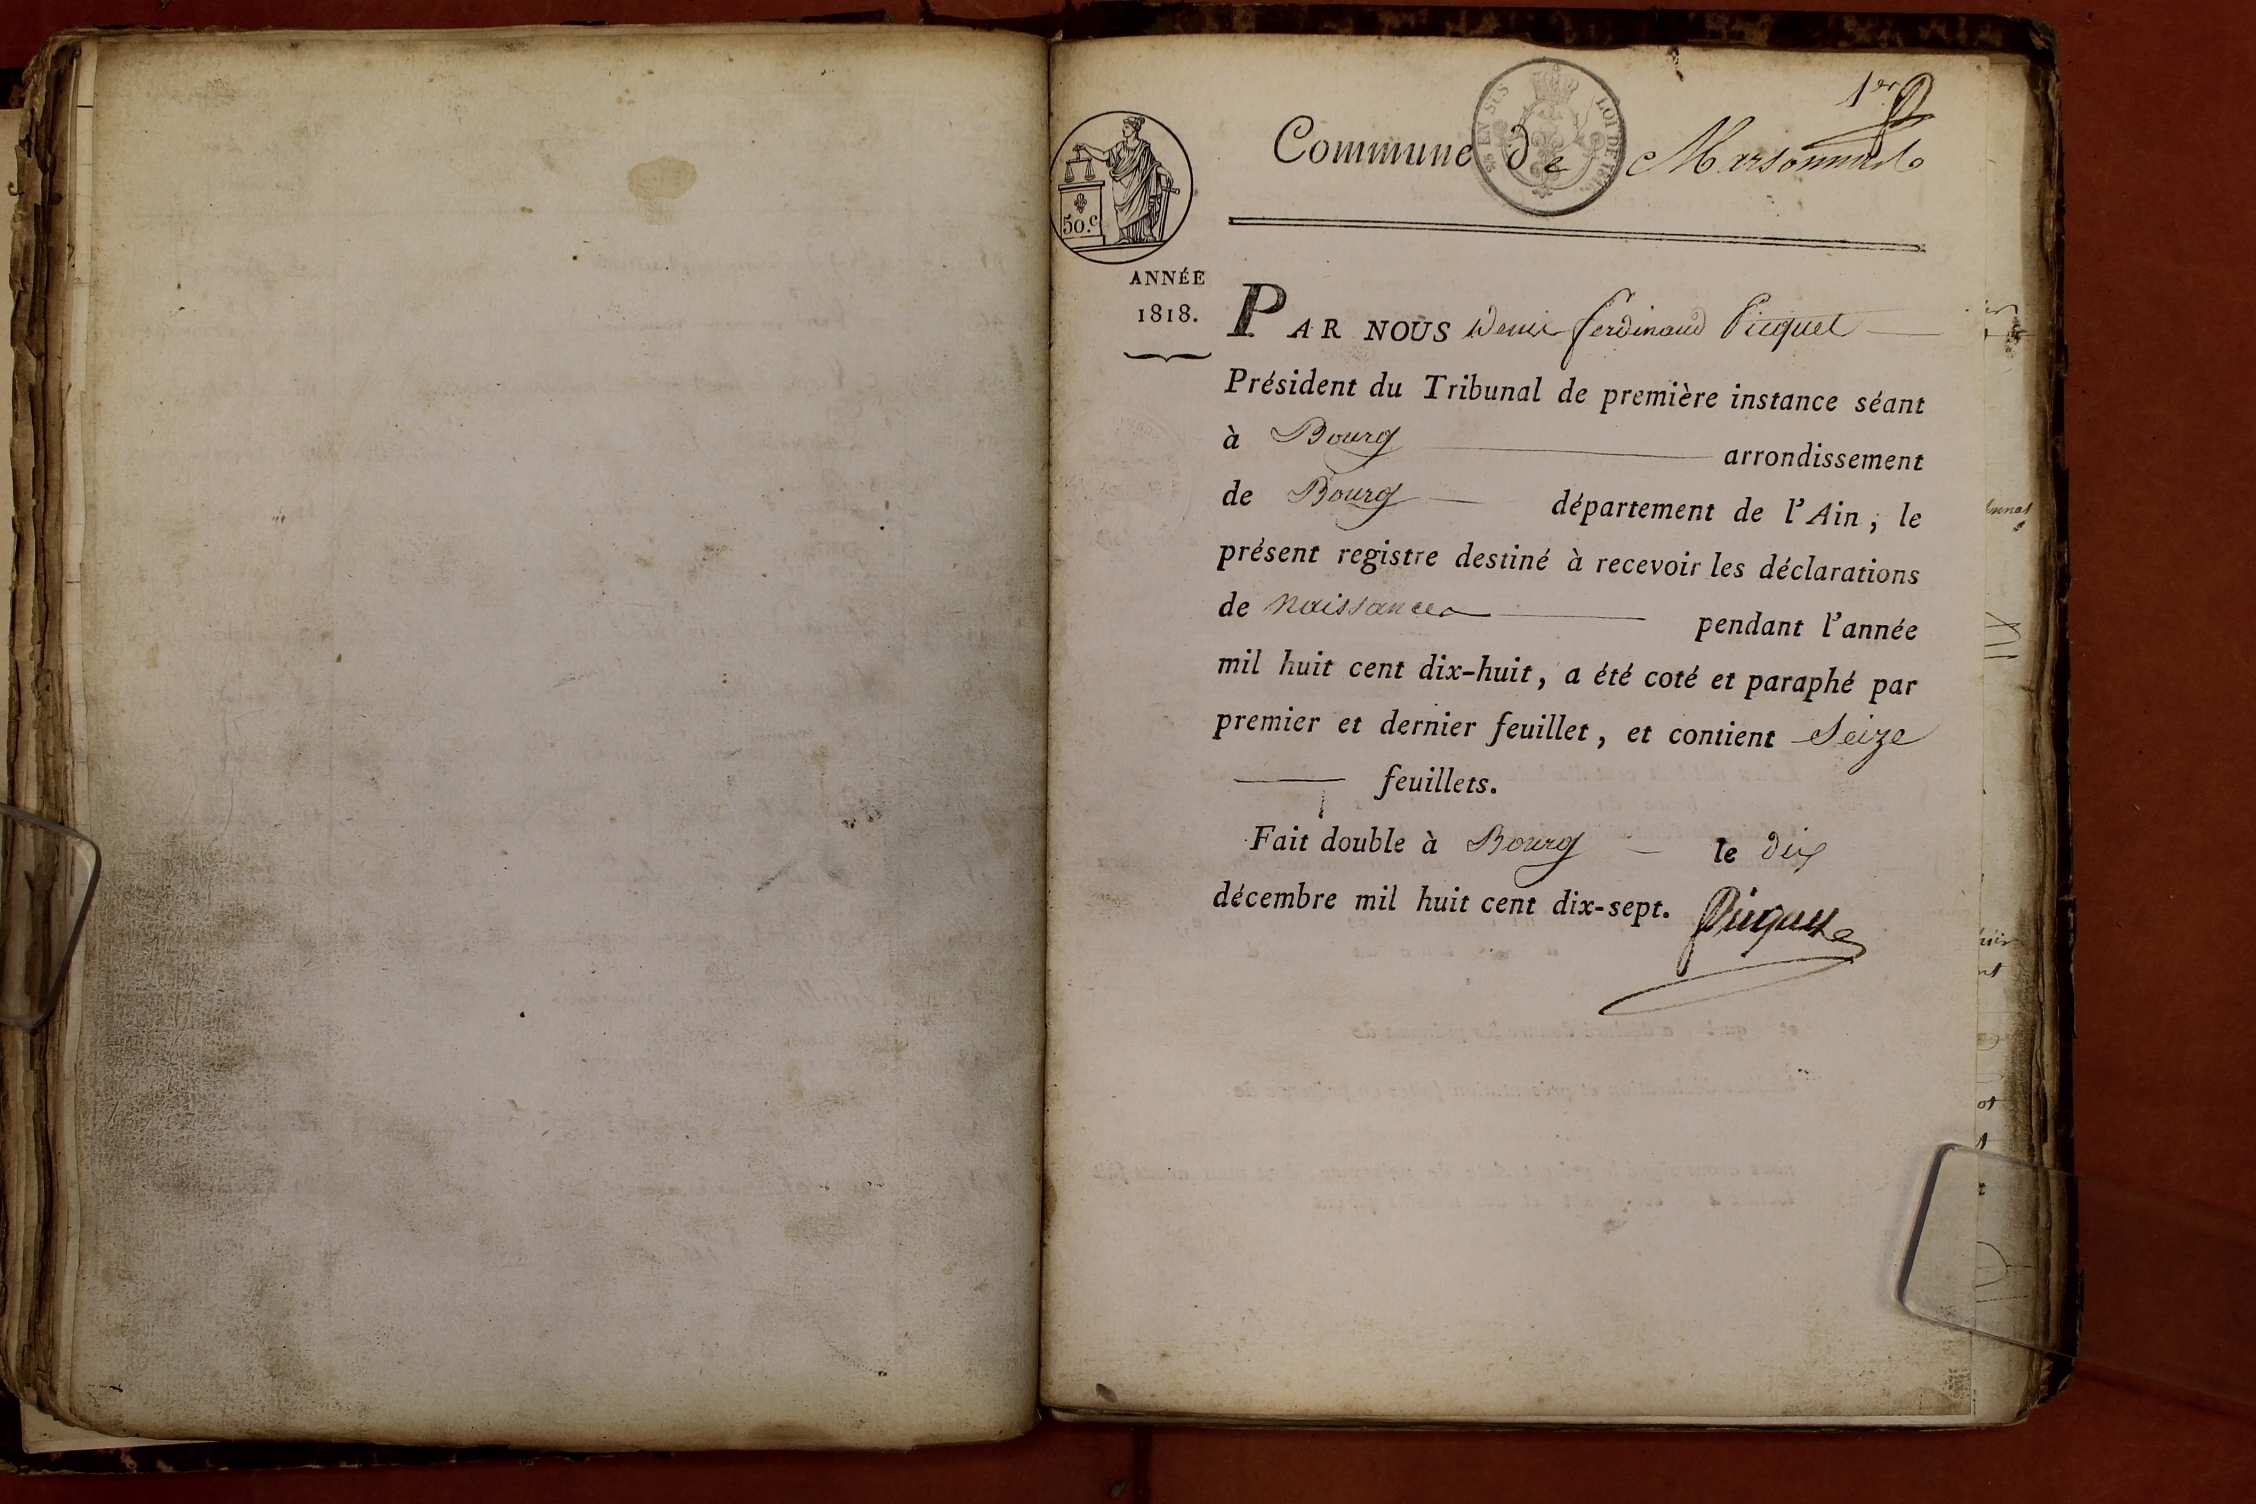 1er
Commune de Marsonnas
25 EN SUS LOI DE 1816.
50.c
ANNÉE
1818.
PAR NOUS Denis ferdinand Picquet
Président du Tribunal de première instance séant
à Bourg arrondissement
de Bourg département de l'Ain ; le
présent registre destiné à recevoir les déclarations
de naissance pendant l'année
mil huit cent dix-huit, a été coté et paraphé par
premier et dernier feuillet, et contient Seize
feuillets.
Fait double à Bourg le dix
décembre mil huit cent dix-sept.
Picquet